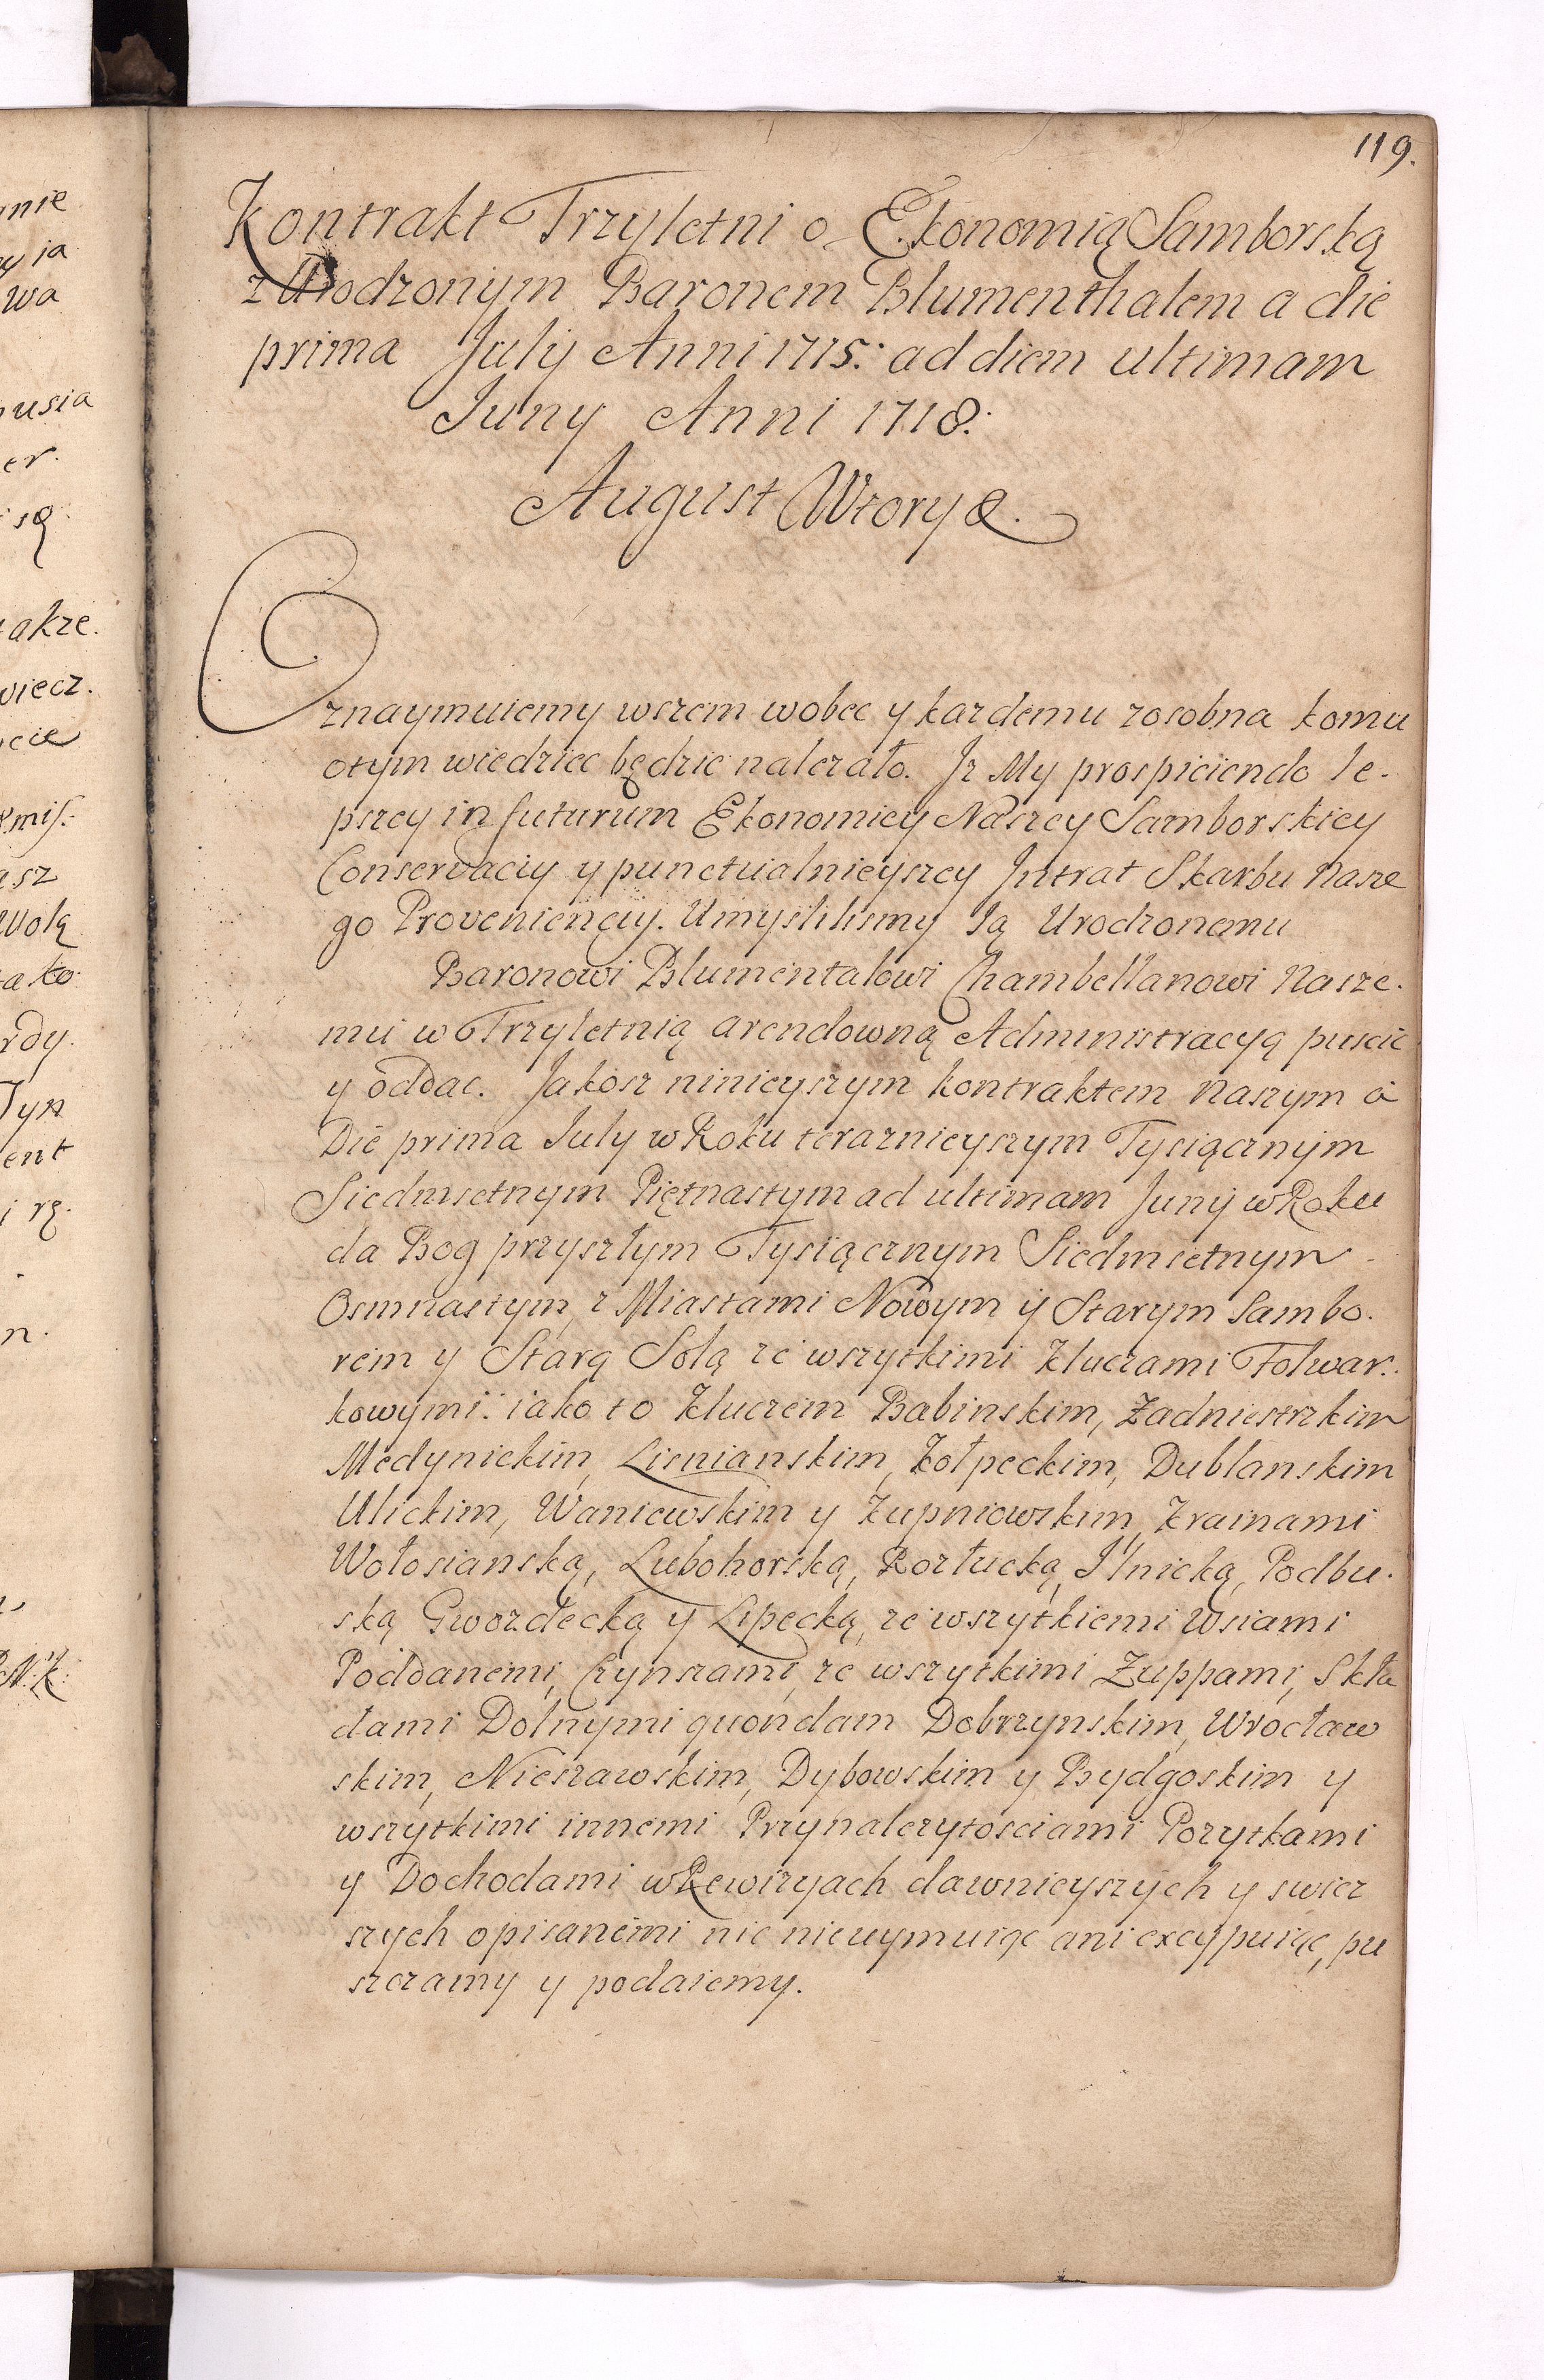 119.
Kontrakt Trzyletni o Ekonomią Samborską
z Urodzonym Baronem Blumenthalem a die
prima July Anni 1715: ad diem ultimam
Juny Anni 1718.
August Wtory &.
Oznaymuiemy wszem wobec y kazdemu zosobna komu
otym wiedziec będzie nalezało. Jz My prospiciendo le-
pszey in futurum Ekonomiey Naszey Samborskiey
Conservaciy y punctualnieyszey Jntrat Skarbu Nasze
go Provenienciy. Umyslilismy Ją Urodzonemu
Baronowi Blumentalowi Chambellanowi Nasze-
mu w Trzyletnią arendowną Administracyą puscic
y oddac. Jakosz ninieyszym kontraktem Naszym a
Die prima July w Roku teraznieyszym Tysiącznym
Siedmsetnym Piętnastym ad ultimam Juny w Roku
da Bog przyszłym Tysiącznym Siedmsetnym
Osmnastym, z Miastami Nowym y Starym Sambo-
rem y Starą Solą ze wszytkimi Kluczami Folwar-
kowymi: iako to Kluczem Babinskim, Zadniestrzkim
Medynickim, Lisnianskim, Kołpeckim, Dublanskim
Ulickim, Waniewskim y Zupniowskim, Krainami
Wołosianską, Lubohorską, Rozłucką, Jlnicką, Podbu-
ską Gwozdecką y Lipecką, ze wszytkiemi Wsiami
Poddanemi, Czynszami, ze wszytkimi Zuppami, Skła
dami Dolnymi quondam Dobrzynskim, Wrocław
skim, Nieszawskim, Dybowskim y Bydgoskim y
wszytkimi innemi Przynalezytosciami Pozytkami
y Dochodami w Rewizyach dawnieyszych y swiez
szych opisanemi nic nieuymuiąc ani excypuiąc, pu
szczamy y podaiemy.